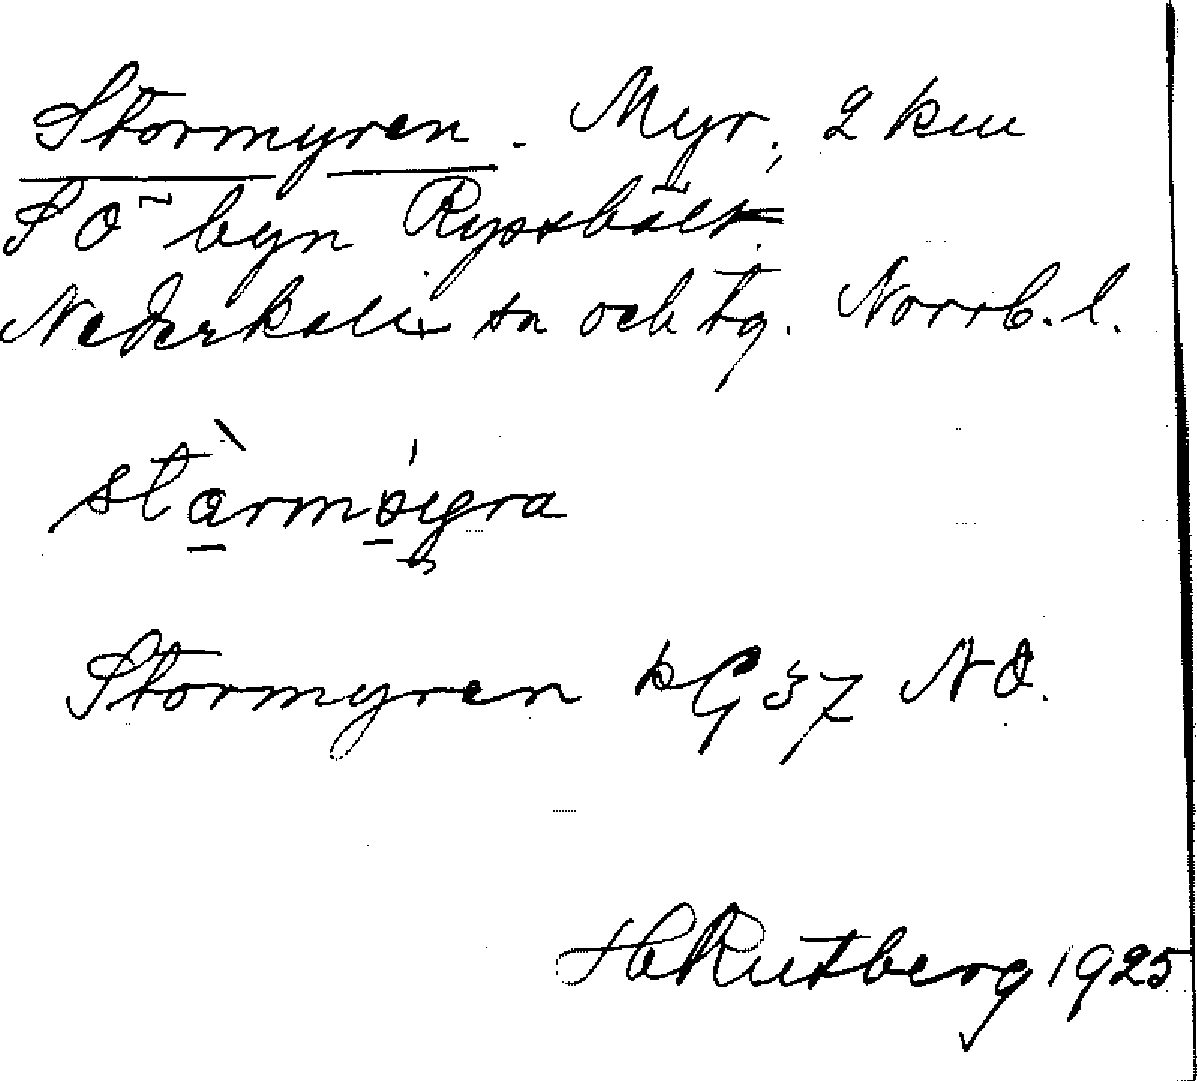 Stormyren. Myr, 2 km
SÖ~ byn Ryssbält
Nederkalix sn och tg. Norrb. l.
Stormyren kG 37 NO.
H Rutberg 1925